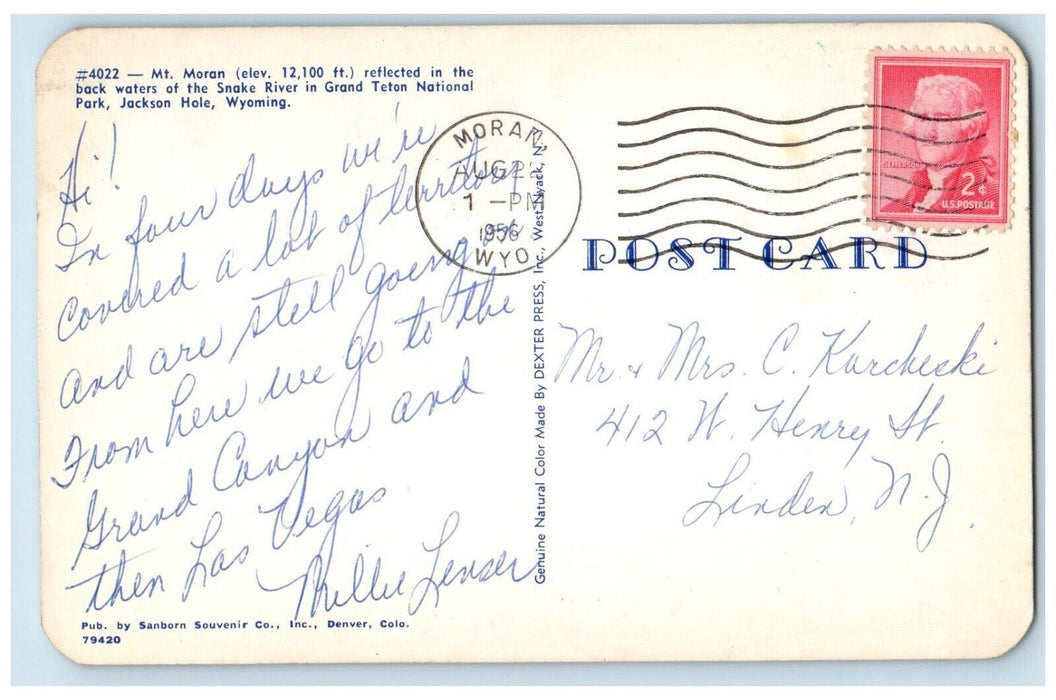 #4022 — Mt. Moran (elev. 12,100 ft.) reflected in the
back waters of the Snake River in Grand Teton National
Park, Jackson Hole, Wyoming.
Hi!
In four days we're
covered a lot of territory
and are still going.
From here we go to the
Grand Canyon and
then Las Vegas
Millie
Pub. by Sanborn Souvenir Co., Inc., Denver, Colo.
79420
Genuine Natural Color Made By DEXTER PRESS, Inc., West Nyack, N.Y.
MORAN,
AUG 22
1 - PM
1956
WYO.
JEFFERSON
2¢
U.S. POSTAGE
POST CARD
Mr. & Mrs. C. Karcheski
412 W. Henry St.
Linden, N.J.